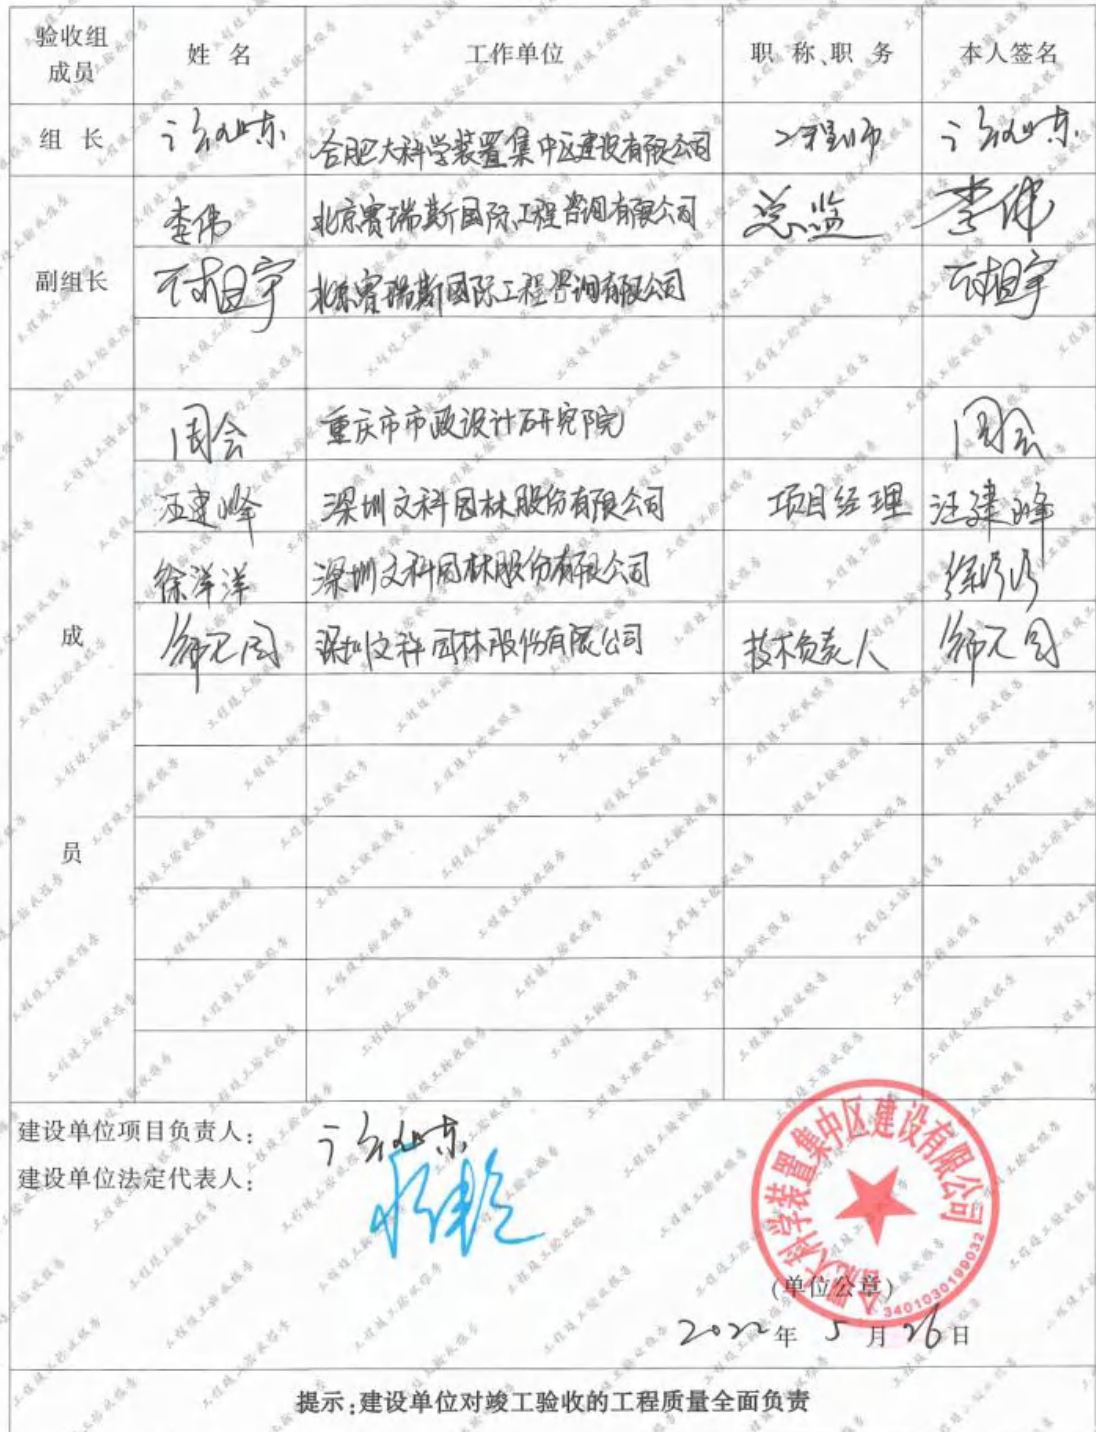 验收组成员 姓名 工作单位 职称、职务 本人签名
组长 合肥大科学装置集中区建设有限公司 工程师
李伟 北京赛瑞斯国际工程咨询有限公司 总监 李伟
副组长 北京赛瑞斯国际工程咨询有限公司
周会 重庆市市政设计研究院 周会
汪建峰 深圳文科园林股份有限公司 项目经理 汪建峰
徐洋洋 深圳文科园林股份有限公司 徐洋洋
成 深圳文科园林股份有限公司 技术负责人
员
建设单位项目负责人：
建设单位法定代表人：
合肥大科学装置集中区建设有限公司
3401030199032
(单位公章)
2022年5月26日
提示：建设单位对竣工验收的工程质量全面负责
工程竣工验收报告